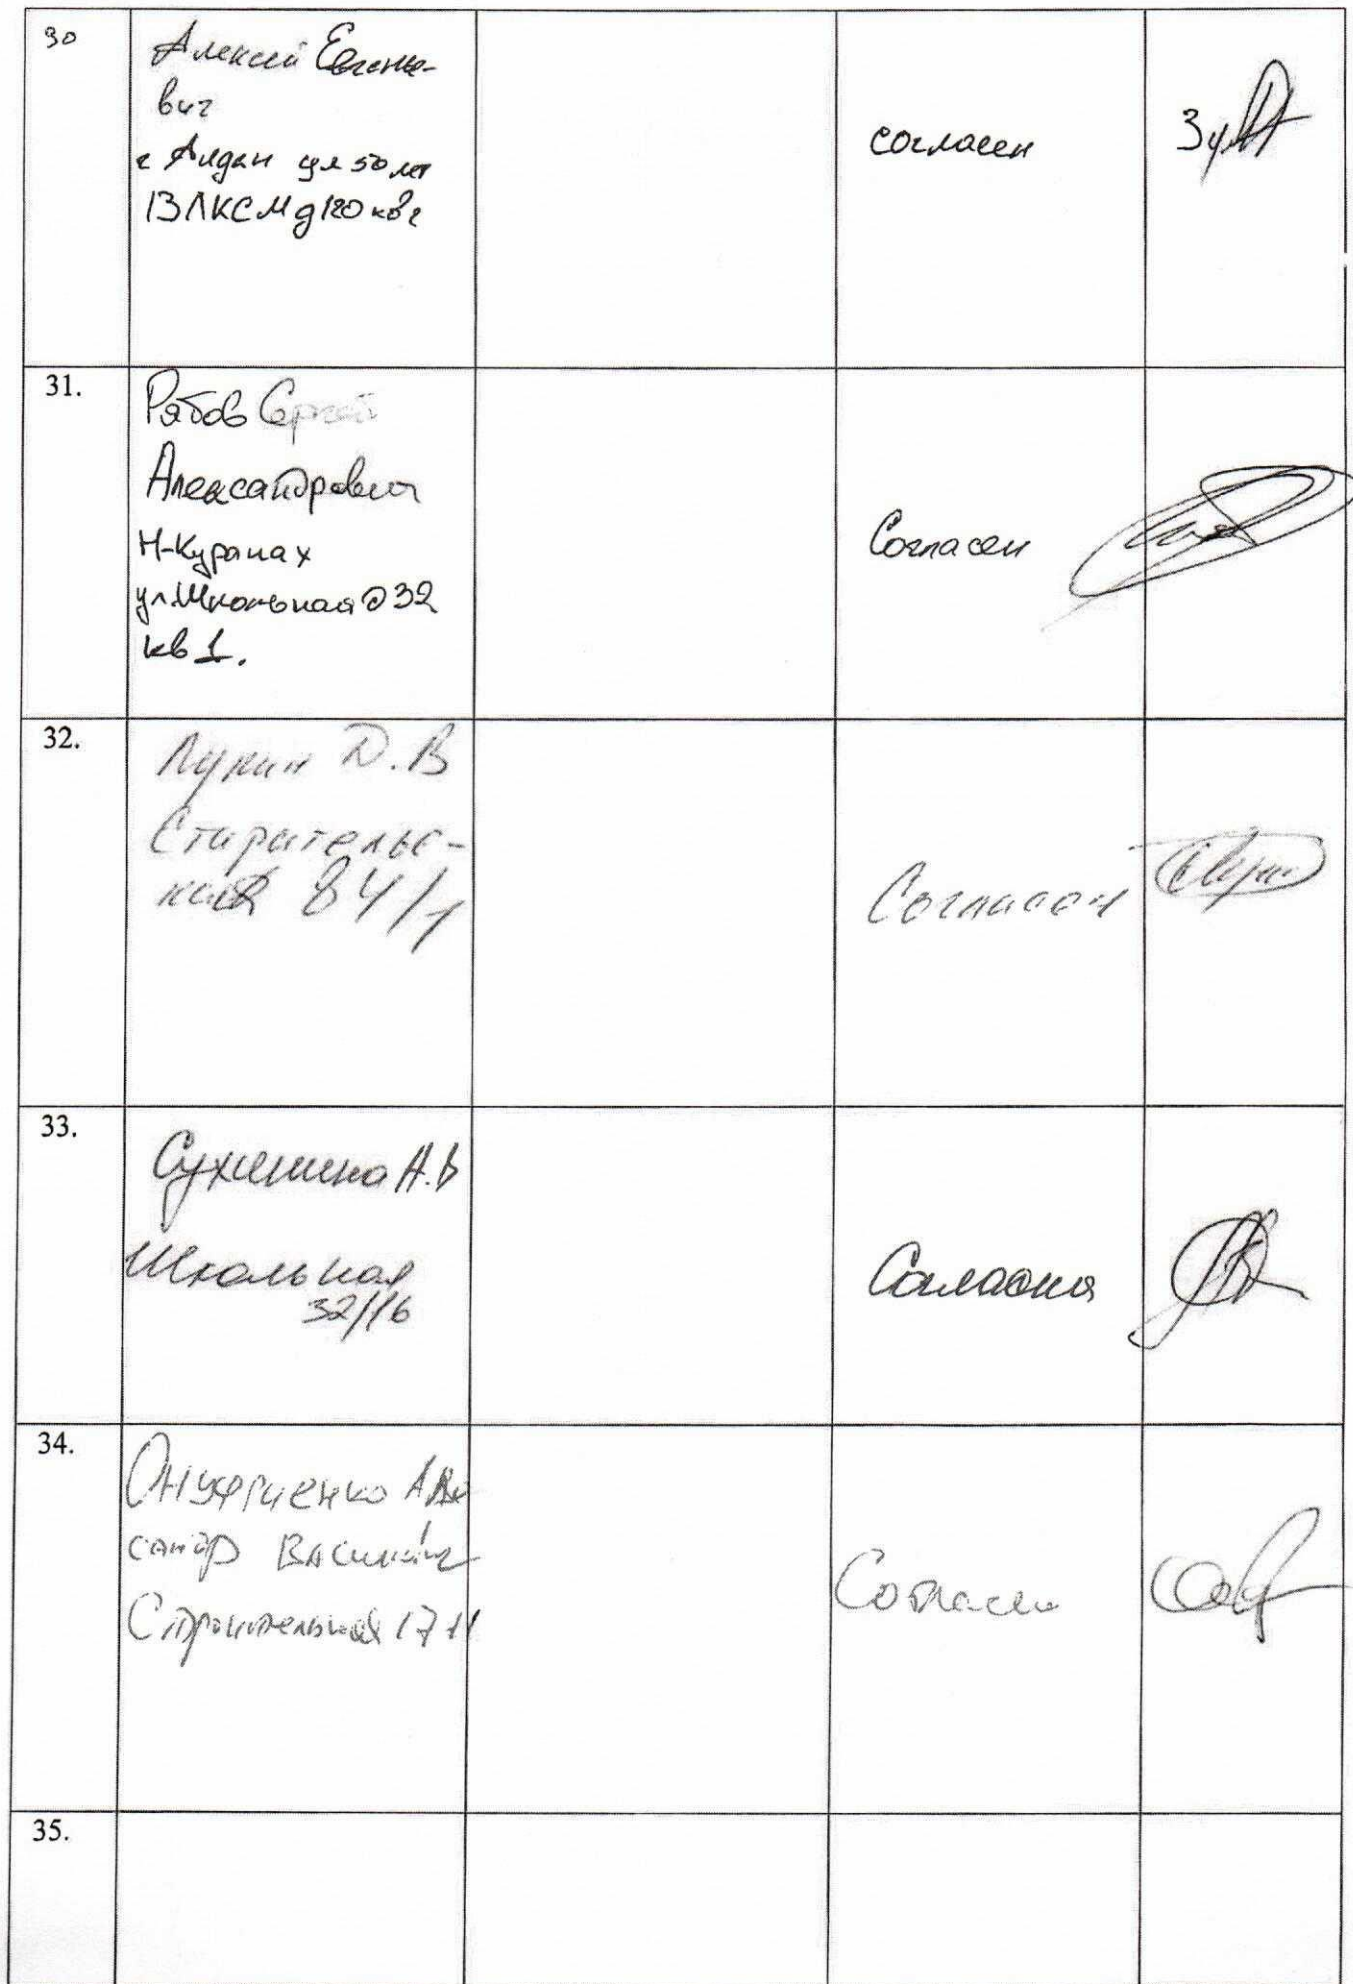 30
Алексей Евгенье-
вич
г Алдан ул 50 лет
ВЛКСМ д 120 кв 2
согласен
31.
Рябов Сергей
Александрович
Н-Куранах
ул. Школьная д 32
кв 1.
Согласен
32.
Лукин Д.В
Старательс-
кая 84/1
Согласен
33.
Сухинина А.В
Школьная
32/16
Согласна
34.
Онуфриенко
сандр
Строительная 17
Согласен
35.